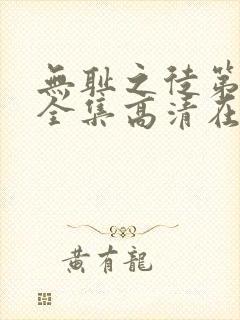 無耻之徒第
全集高清在
黄有龍